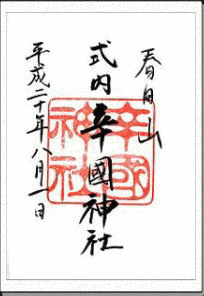 春日山
式内辛國神社
平成二十年八月一日
辛國
神社